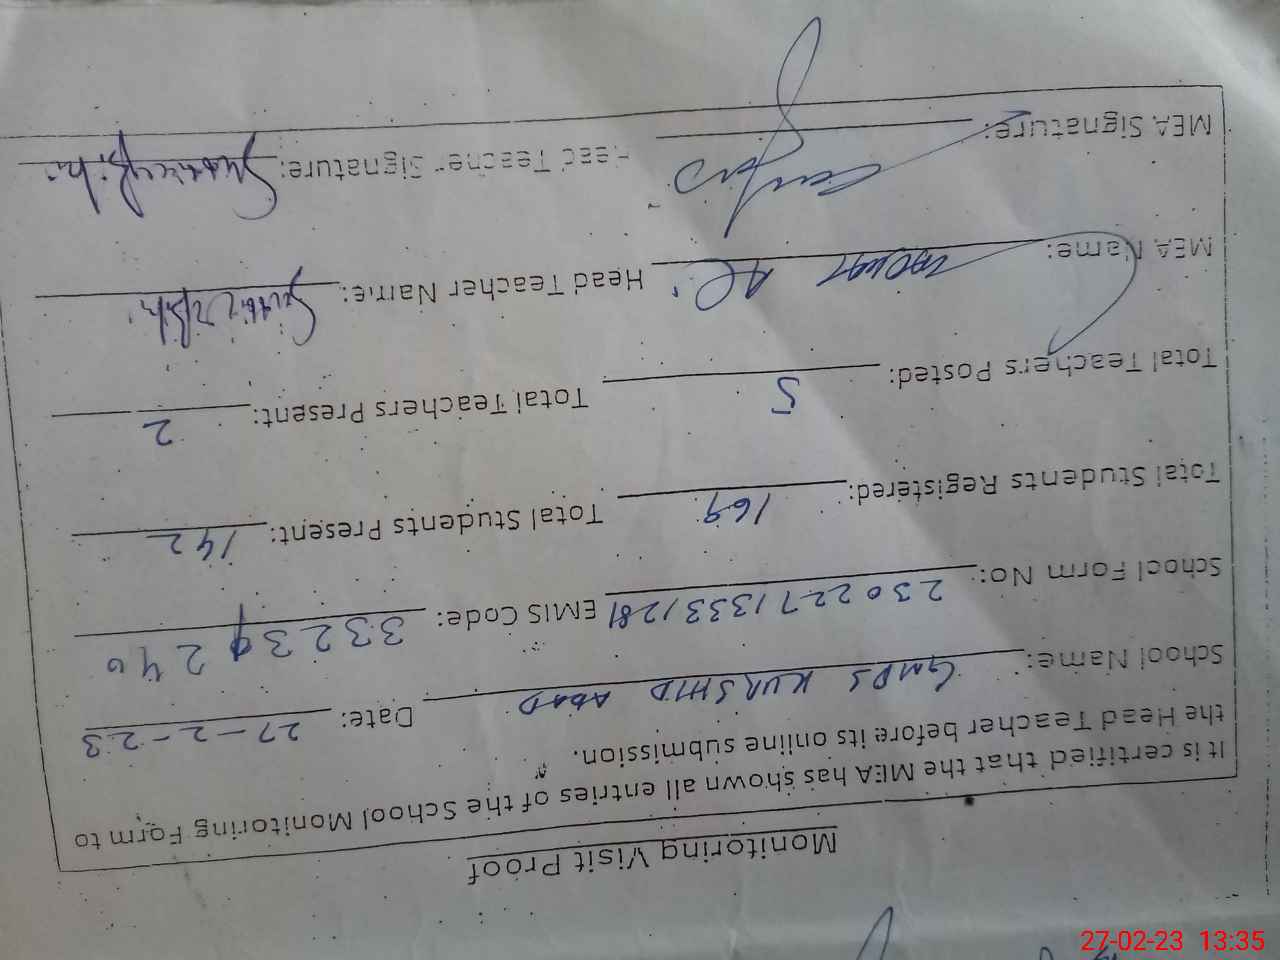 Monitoring Visit Proof
It is certified that the MEA has shown all entries of the School Monitoring Form to
the Head Teacher before its online submission.
School Name: GMPS KURSHID ABAD Date: 27-2-23
School Form No: 23022713331281 EMIS Code: 33239240
Total Students Registered: 169 Total Students Present: 142
Total Teachers Posted: 5 Total Teachers Present: 2
MEA Name: Head Teacher Name:
MEA Signature: Head Teacher Signature:
27-02-23 13:35